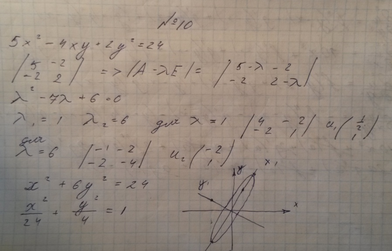 №10
5x² - 4xy + 2y² = 24
|5 -2; -2 2| => |A - λE| = |5-λ -2; -2 2-λ|
λ² - 7λ + 6 = 0
λ₁ = 1 λ₂ = 6 для λ = 1 |4 -2; -2 1| u₁(1; 2)
для λ = 6 |-1 -2; -2 -4| u₂(-2; 1)
x² + 6y² = 24
x²/24 + y²/4 = 1
y' y x'
x